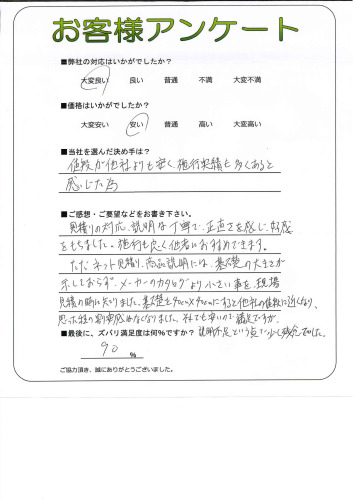 お客様アンケート
■弊社の対応はいかがでしたか?
大変良い 良い 普通 不満 大変不満
■価格はいかがでしたか?
大変安い 安い 普通 高い 大変高い
■当社を選んだ決め手は?
値段が他社よりも安く、施行実績も多くあると
感じた為
■ご感想・ご要望などをお書き下さい。
見積りの対応、説明は丁寧で、正直さを感じ、好感
をもちました。施行も良く他者におすすめできます。
ただネット見積り、商品説明には、基礎の大きさが
示しておらず、メーカーのカタログより小さい事を、現場
見積の時に知りました。基礎を90cm×90cmにすると他社の値段に近くなり、
思った程の割安感はなくなりました。それでも安いので満足ですが、
■最後に、ズバリ満足度は何%ですか? 説明不足という点で少し残念でした。
90 %
ご協力頂き、誠にありがとうございました。